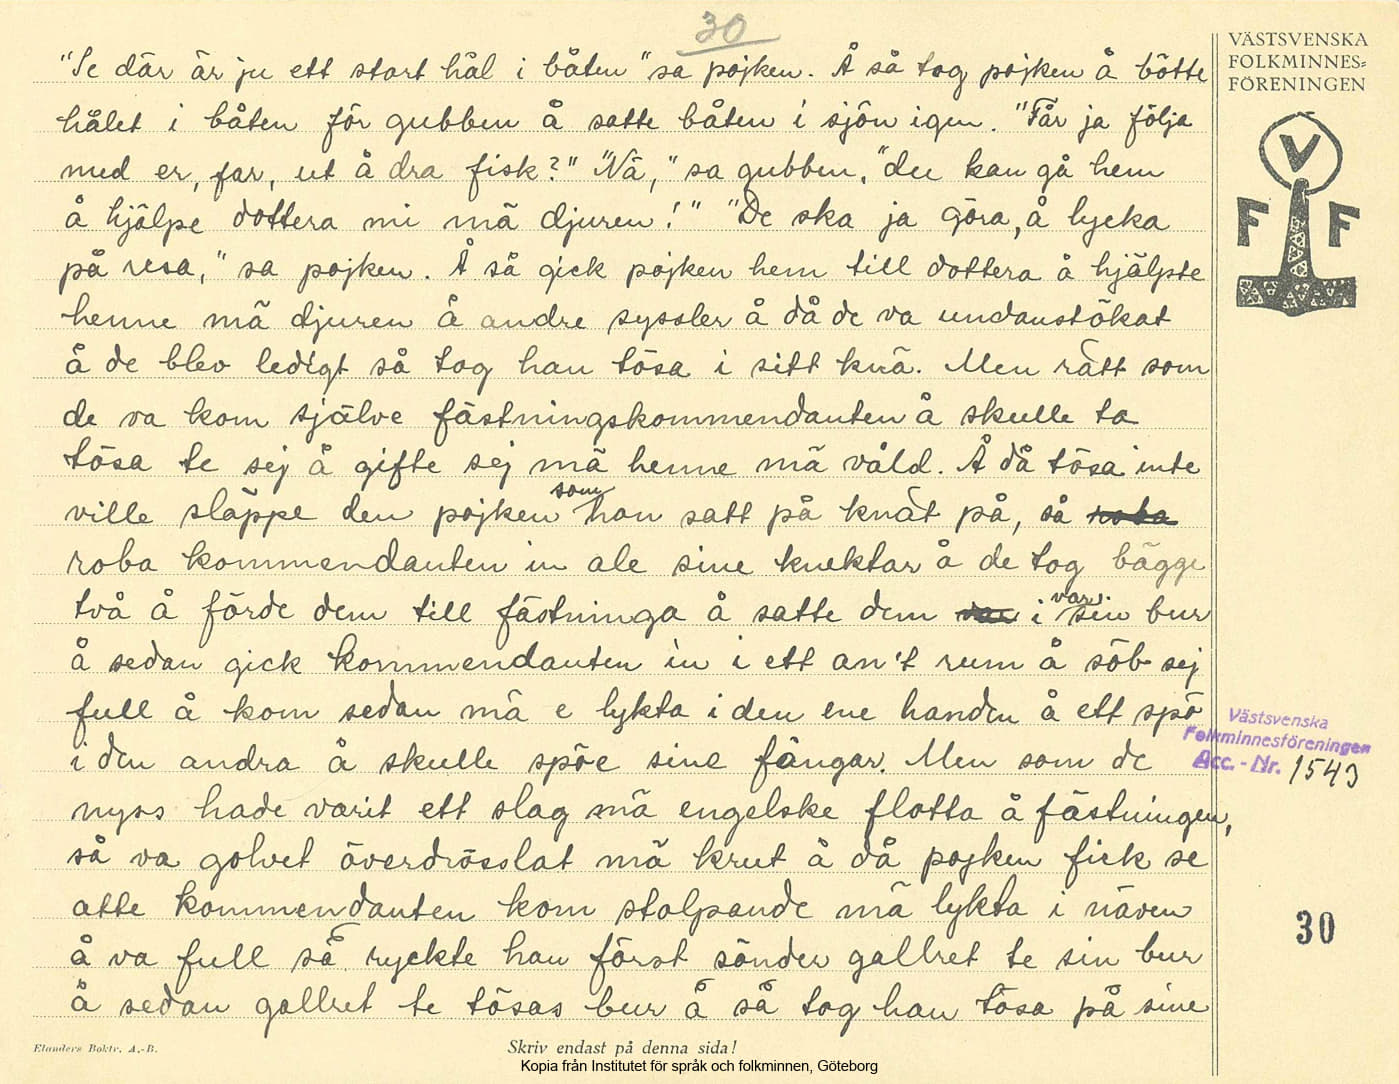 30
"Se där är ju ett stort hål i båten" sa pojken. Å så tog pojken å bötte
hålet i båten för gubben å satte båten i sjön igen. "Får ja följa
med er, far, ut å dra fisk?" "Nä," sa gubben, "du kan gå hem
å hjälpe dottera mi mä djuren!" "De ska ja göra, å lycka
på resa," sa pojken. Å så gick pojken hem till dottera å hjälpte
henne mä djuren å andre syssler å då de va undanstökat
å de blev ledigt så tog han tösa i sitt knä. Men rätt som
de va kom själve fästningskommendanten å skulle ta
tösa te sej å gifte sej mä henne mä våld. Å då tösa inte
ville släppe den pojken som hon satt på knät på, så roba
roba kommendanten in ale sine knektar å de tog bägge
två å förde dem till fästninga å satte dem var i var sin bur
å sedan gick kommendanten in i ett an't rum å söb sej
full å kom sedan mä e lykta i den ene handen å ett spö
i den andra å skulle spöe sine fångar. Men som de
nyss hade varit ett slag mä engelske flotta å fästningen,
så va golvet överdrösslat mä krut å då pojken fick se
atte kommendanten kom stolpande mä lykta i näven
å va full så ryckte han först sönder gallret te sin bur
å sedan gallret te tösas bur å så tog han tösa på sine
VÄSTSVENSKA
FOLKMINNES=
FÖRENINGEN
V
F F
Västsvenska
Folkminnesföreningen
Acc.-Nr. 1543
30
Elanders Boktr. A.-B.
Skriv endast på denna sida!
Kopia från Institutet för språk och folkminnen, Göteborg